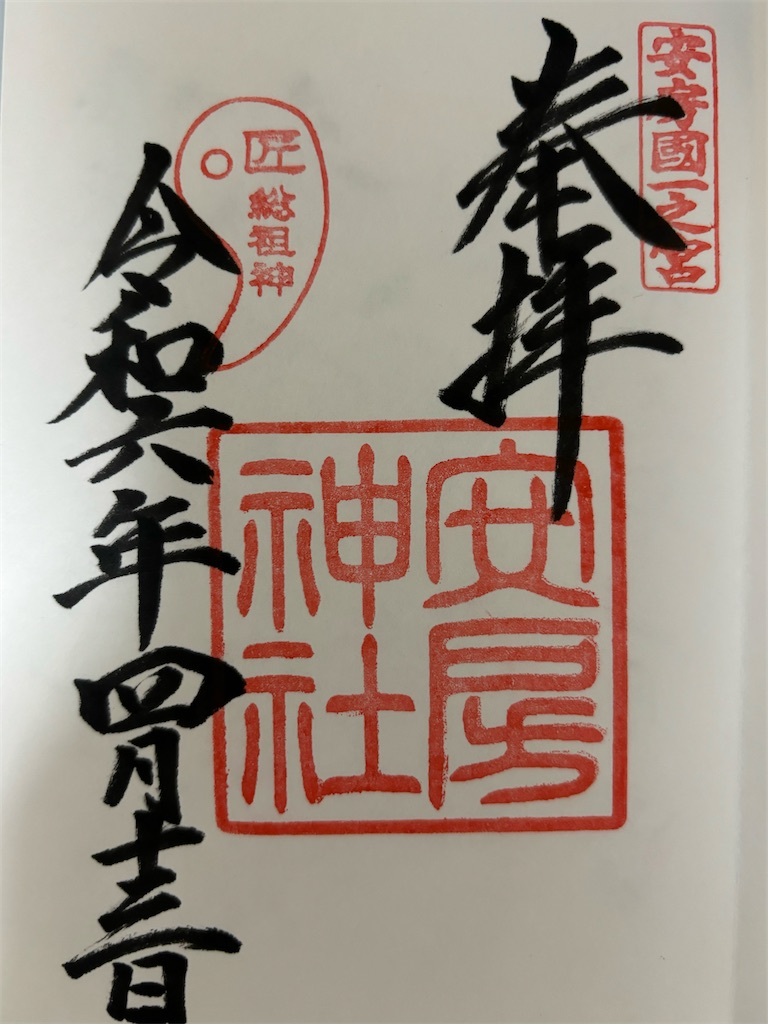 安房國一之宮
奉拝
安房
神社
匠
総祖神
令和六年四月十三日